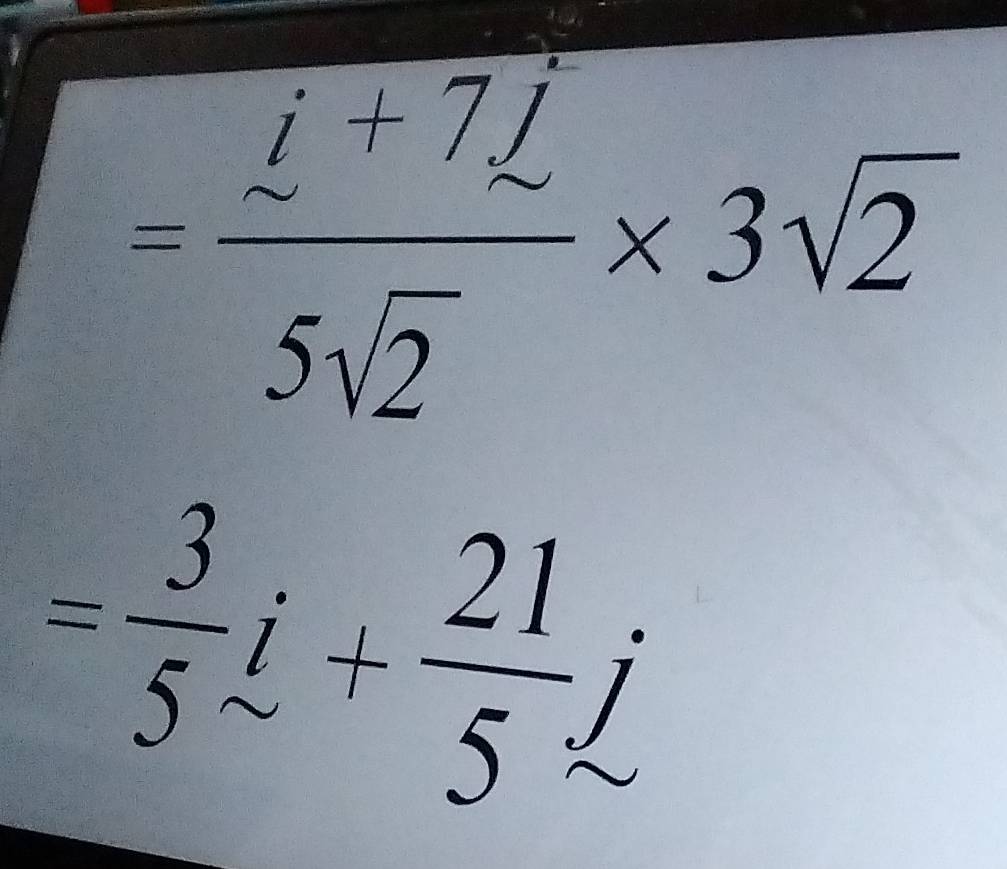 = \frac{\underset{\sim}{i} + 7\underset{\sim}{j}}{5\sqrt{2}} \times 3\sqrt{2}
= \frac{3}{5}\underset{\sim}{i} + \frac{21}{5}\underset{\sim}{j}